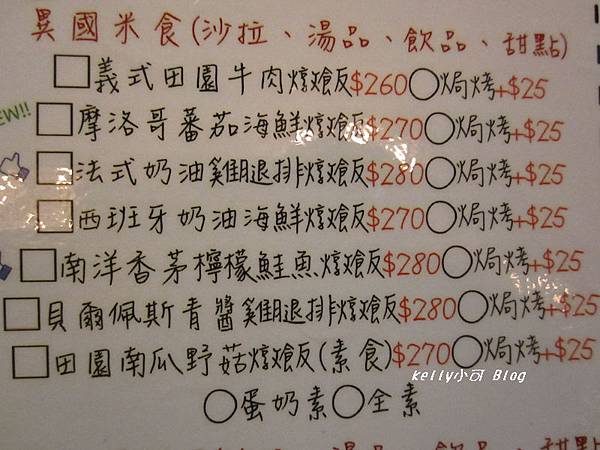 異國米食(沙拉、湯品、飲品、甜點)
義式田園牛肉燉飯$260○焗烤+$25
NEW!!
摩洛哥蕃茄海鮮燉飯$270○焗烤+$25
法式奶油雞腿排燉飯$280○焗烤+$25
西班牙奶油海鮮燉飯$270○焗烤+$25
南洋香茅檸檬鮭魚燉飯$280○焗烤+$25
貝爾佩斯青醬雞腿排燉飯$280○焗烤+$25
田園南瓜野菇燉飯(素食)$270○焗烤+$25
kelly小可 Blog
○蛋奶素○全素
湯品、飲品、甜點